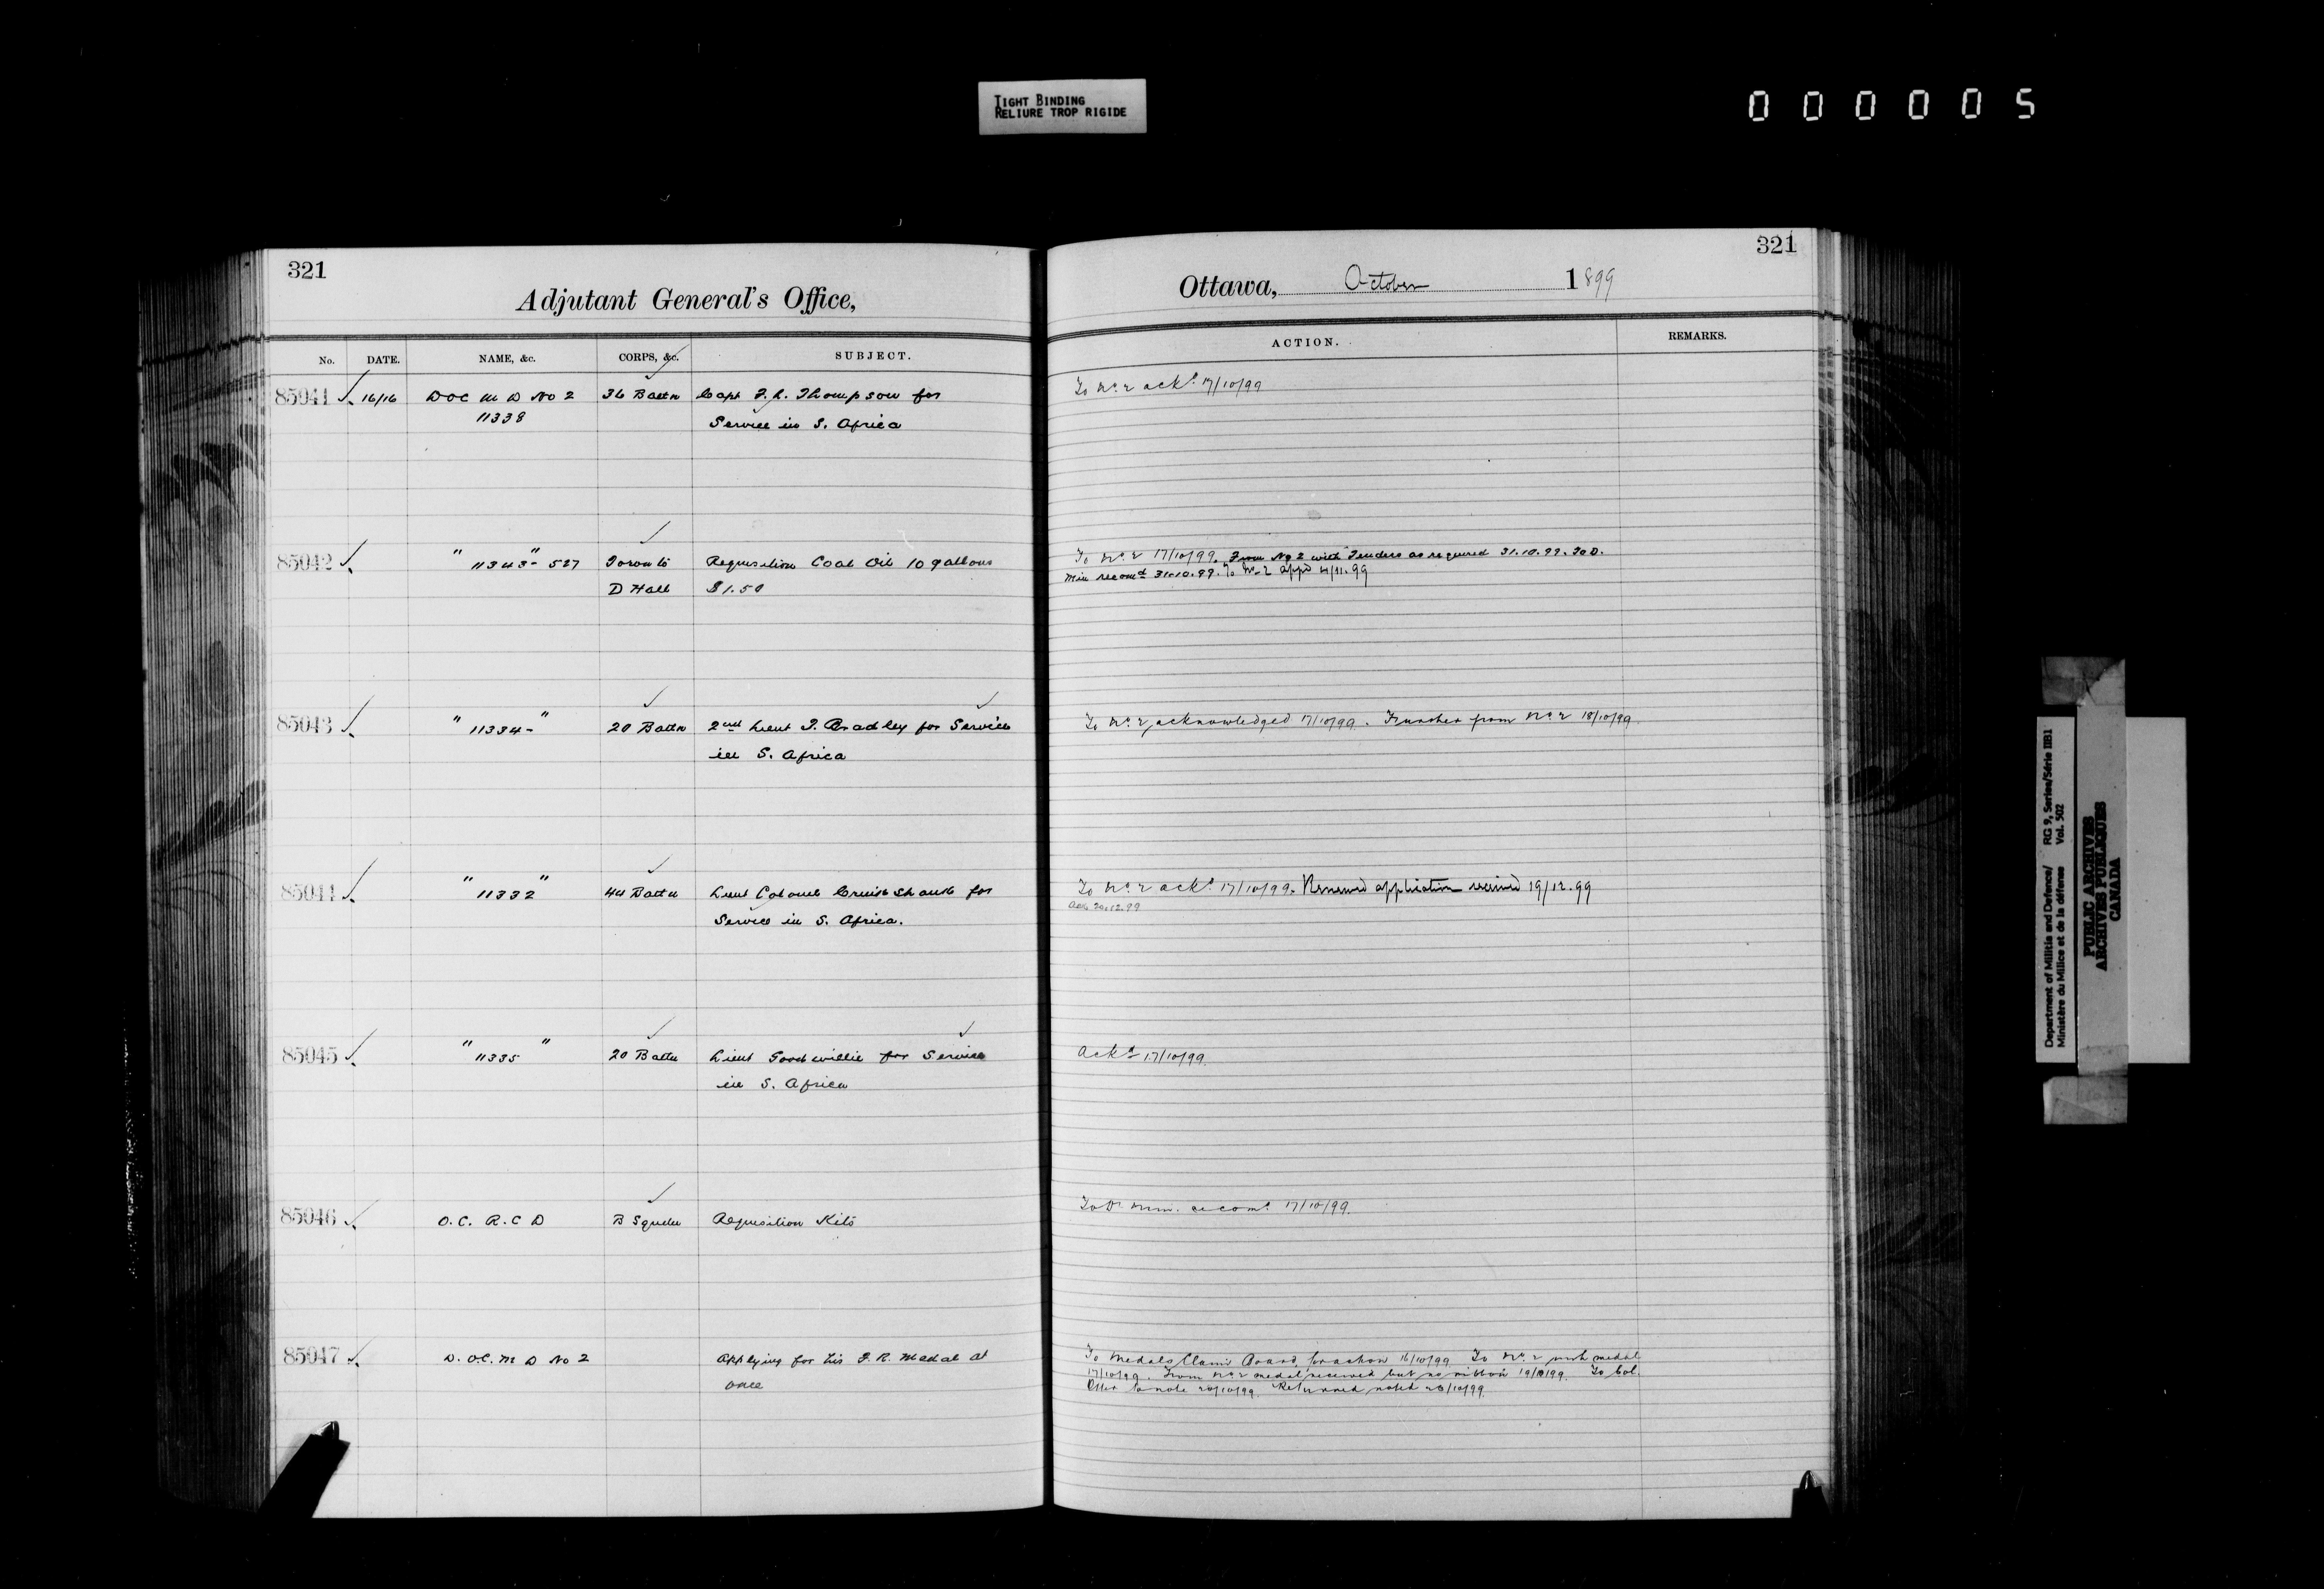 TIGHT BINDING
RELIURE TROP RIGIDE
000005
321
Adjutant General's Office,
No. DATE. NAME, &c. CORPS, &c. SUBJECT.
85041 16/16 DOC M D No 2 36 Battn Capt F. H. Thompson for
11338 Service in S. Africa
85042 " 11343 " 527 Toronto Requisition Coal Oil 10 gallons
D Hall $1.50
85043 " 11334 - " 20 Battn 2nd Lieut J. Bradley for Service
in S. Africa
85044 " 11332 " 44 Battn Lieut Colonel Cruikshank for
Service in S. Africa.
85045 " 11335 " 20 Battn Lieut Goodwillie for Service
in S. Africa
85046 O.C. R.C D B Squdn Requisition Kits
85047 D.O.C. M D No 2 Applying for his G.R. Medal at
once
321
Ottawa, October 1899
ACTION. REMARKS.
To No. 2 ackd 17/10/99
To No. 2 17/10/99. From No 2 with Tenders as required 31.10.99. To D.
Min recomd 31.10.99. To No. 2 appd 4/11.99
To No. 2, acknowledged 17/10/99. Further from No. 2 18/10/99.
To No. 2 ackd 17/10/99. Renewed application received 19/12.99
Ack 20.12.99
Ackd 17/10/99.
To D. Min. recomd 17/10/99.
To Medals Claims Board, for action 16/10/99. To No. 2 with medal
17/10/99. From No. 2 medal received but no ribbon 19/10/99. To Col.
to note 20/10/99. Returned noted 20/10/99.
Department of Militia and Defence/ RG 9, Series/Série IIB1
Ministère du Milice et de la défense Vol. 502
PUBLIC ARCHIVES
ARCHIVES PUBLIQUES
CANADA